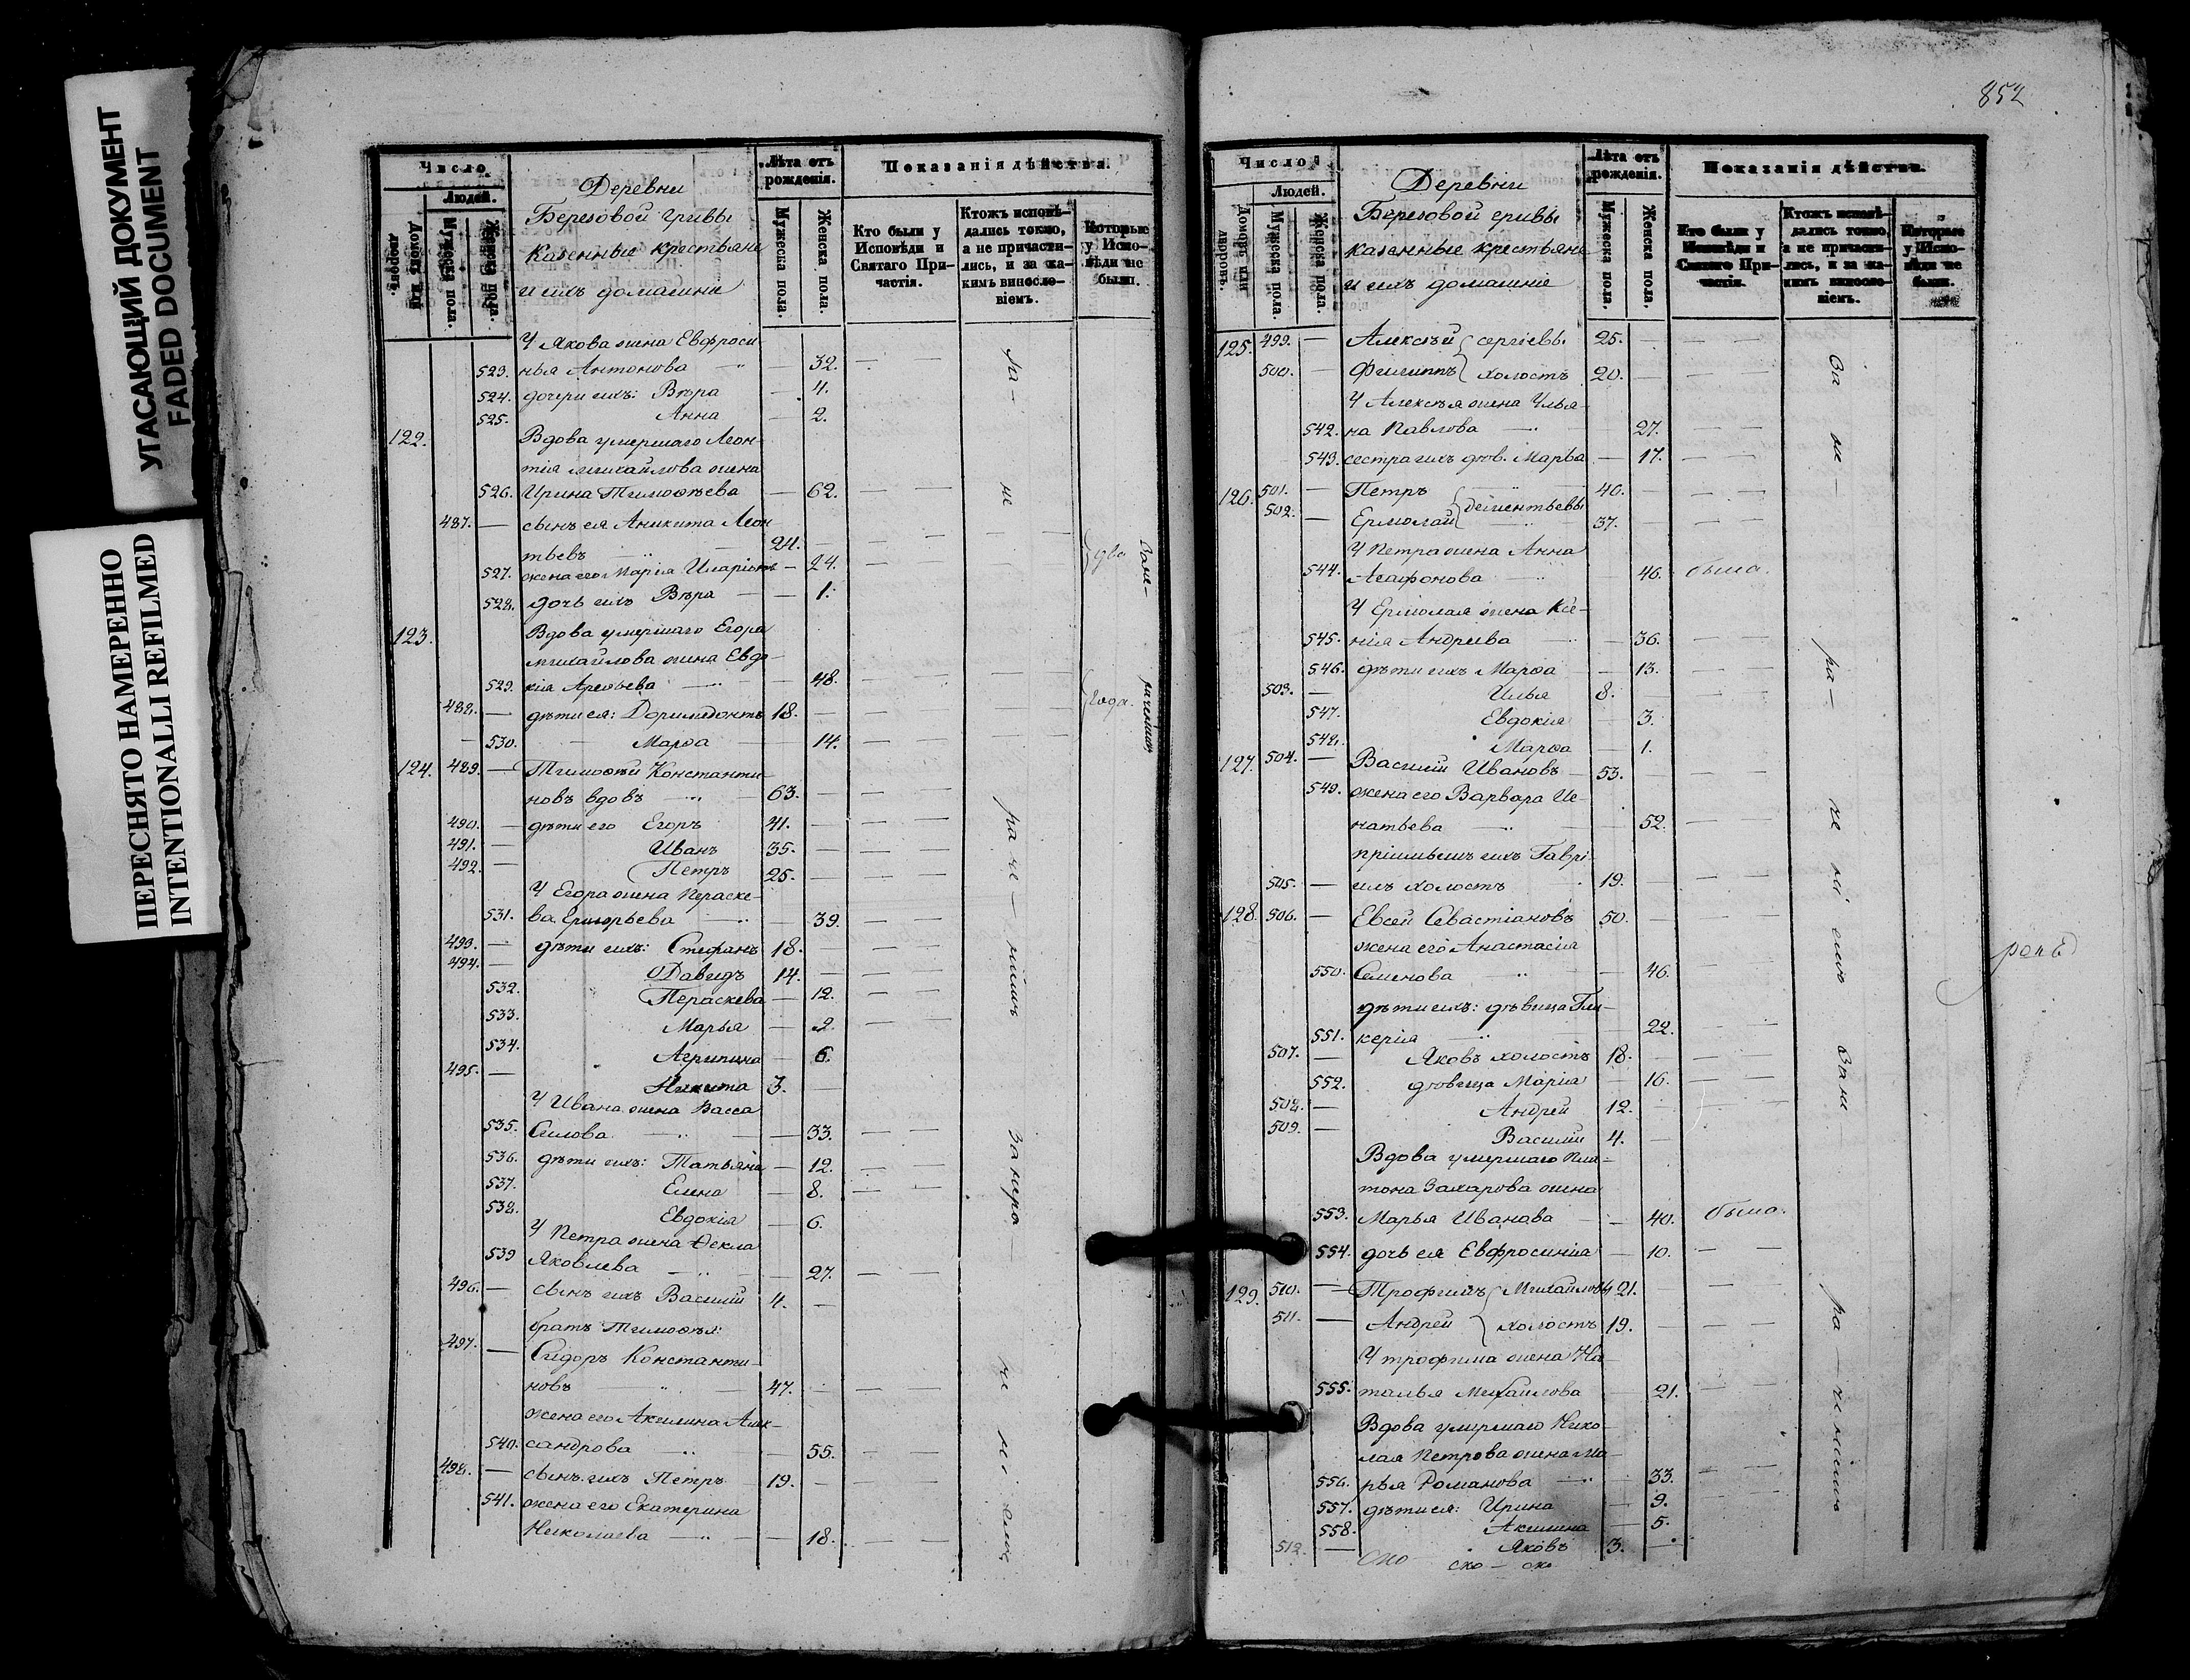 УГАСАЮЩИЙ ДОКУМЕНТ
FADED DOCUMENT
ПЕРЕСНЯТО НАМЕРЕННО
INTENTIONALLI REFILMED
Число
Людей.
Домовъ или дворовъ.
Мужеска пола.
Женска пола.
Деревни
Березовой гривы
казенные крестьяне
и ихъ домашние
Лѣта отъ рожденія.
Мужеска пола.
Женска пола.
Показанія дѣйства.
Кто были у Исповѣди и Святаго Причастія.
Ктожъ исповѣдались токмо, а не причастились, и за какимъ винословіемъ.
Которые у Исповѣди не были.
У Якова жена Евфроси
523. нья Антонова — 32.
524. дочери ихъ: Вѣра — 4.
525. Анна — 2.
122. Вдова умершаго Леон-
тія Михайлова жена
526. Ирина Тимоѳѣева — 62.
487. — сынъ ея Аникита Леон
тьевъ — 24.
527. жена его Марія — 24.
528. дочь ихъ Вѣра — 1.
123. Вдова умершаго Егора
Михайлова жена Евдо-
529. кія — 48.
488. — дѣти ея: Доримедонтъ 18.
530. Марѳа — 14.
124. 489. — Тимоѳѣй Константи-
новъ вдовъ — 63.
490. — дѣти его Егоръ 41.
491. — Иванъ 35.
492. — Петръ 25.
У Егора жена Параске-
531. ва Григорьева — 39.
493. — дѣти ихъ: Стефанъ 18.
494. — Давидъ 14.
532. Пераскева — 12.
533. Марья — 2.
534. Агрипина — 6.
495. — Никита 3.
У Ивана жена Васса
535. Силова — 33.
536. дѣти ихъ: Татьяна — 12.
537. Елена — 8.
538. Евдокія — 6.
У Петра жена Ѳекла
539 Яковлева — 27.
496. — сынъ ихъ Василій 4.
братъ Тимоѳѣя:
497. — Сидоръ Константи-
новъ — 47.
жена его Акилина Алек-
540. сандрова — 55.
498. — сынъ ихъ Петръ 19.
541. жена его Екатерина
Николаева — 18.
852
Число
Людей.
Домовъ или дворовъ.
Мужеска пола.
Женска пола.
Деревни
Березовой гривы
казенные крестьяне
и ихъ домашніе
Лѣта отъ рожденія.
Мужеска пола.
Женска пола.
Показанія дѣйства.
Кто были у Исповѣди и Святаго Причастія.
Ктожъ исповѣдались токмо, а не причастились, и за какимъ винословіемъ.
Которые у Исповѣди не были.
125. 499. — Алексѣй сергіевы 25.
500. — Филиппъ холостъ 20.
У Алексѣя жена Улья-
542. на Павлова — 27.
543. сестра ихъ дѣв. Марья — 17.
126. 501. — Петръ 40.
502. — Ермолай Дементьевы 37.
У Петра жена Анна
544. Агафонова — 46. была.
У Ермолая жена Ксе-
545. нія Андреева — 36.
546. дѣти ихъ Марѳа — 13.
503. — Илья 8.
547. Евдокія — 3.
548. Марѳа — 1.
127. 504. — Василій Ивановъ — 53.
549. жена его Варвара Иг-
натьева — 52.
пріимышъ ихъ Гаврі-
505. — илъ холостъ 19.
128. 506. — Евсей Севастіановъ 50.
жена его Анастасія
550. Семенова — 46.
дѣти ихъ: дѣвица Гли-
551. керія — 22.
507. — Яковъ холостъ 18.
552. дѣвица Марія — 16.
508. — Андрей 12.
509. — Василій 4.
Вдова умершаго Пла-
тона Захарова жена
553. Марья Иванова — 40. была.
554. дочь ея Евфросинія — 10.
129. 510. — Трофимъ Михайловы 21.
511. — Андрей холостъ 19.
У трофима жена На-
555. талья Михайлова — 21.
Вдова умершаго Нико-
лая Петрова жена Ма-
556. рья Романова — 33.
557. дѣти ея: Ирина — 9.
558. Акилина — 5.
512. — Яковъ 3.